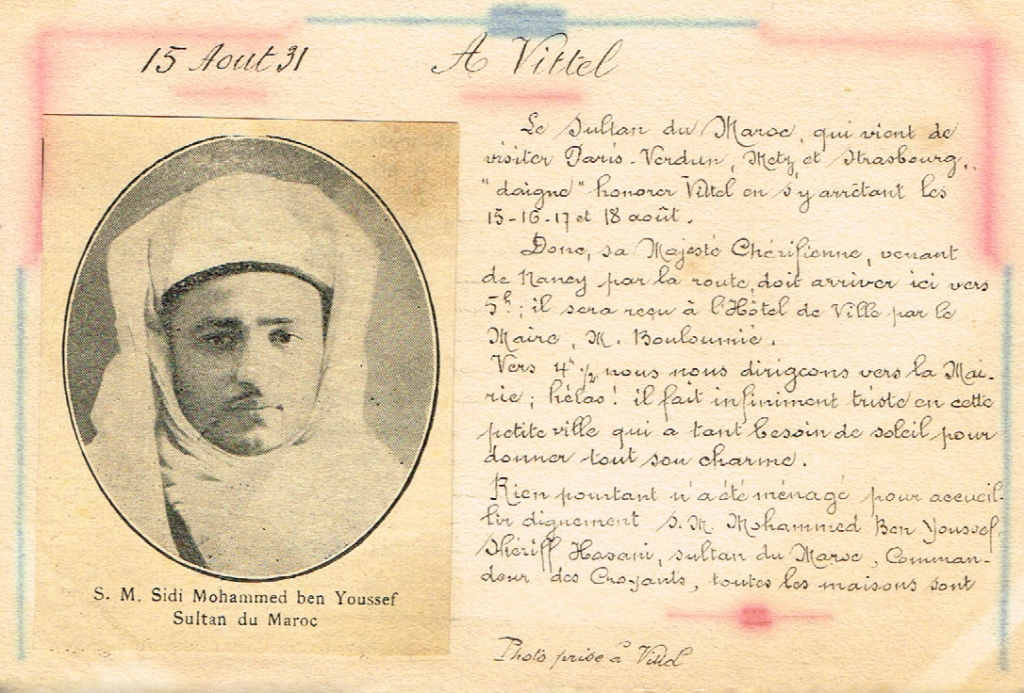 15 Aout 31
A Vittel
Le Sultan du Maroc, qui vient de
visiter Paris-Verdun, Metz et Strasbourg,
"daigne" honorer Vittel en s'y arrêtant les
15-16-17 et 18 août.
Donc, sa Majesté Chérifienne, venant
de Nancy par la route, doit arriver ici vers
5h; il sera reçu à l'Hôtel de Ville par le
Maire, M. Bouloumié.
Vers 4h ½, nous nous dirigeons vers la Mai-
rie; hélas! il fait infiniment triste en cette
petite ville qui a tant besoin de soleil pour
donner tout son charme.
Rien pourtant n'a été ménagé pour accueil-
lir dignement S. M. Mohammed Ben Youssef
Shériff Hasani, sultan du Maroc, Comman-
deur des Croyants, toutes les maisons sont
S. M. Sidi Mohammed ben Youssef
Sultan du Maroc
Photo prise à Vittel